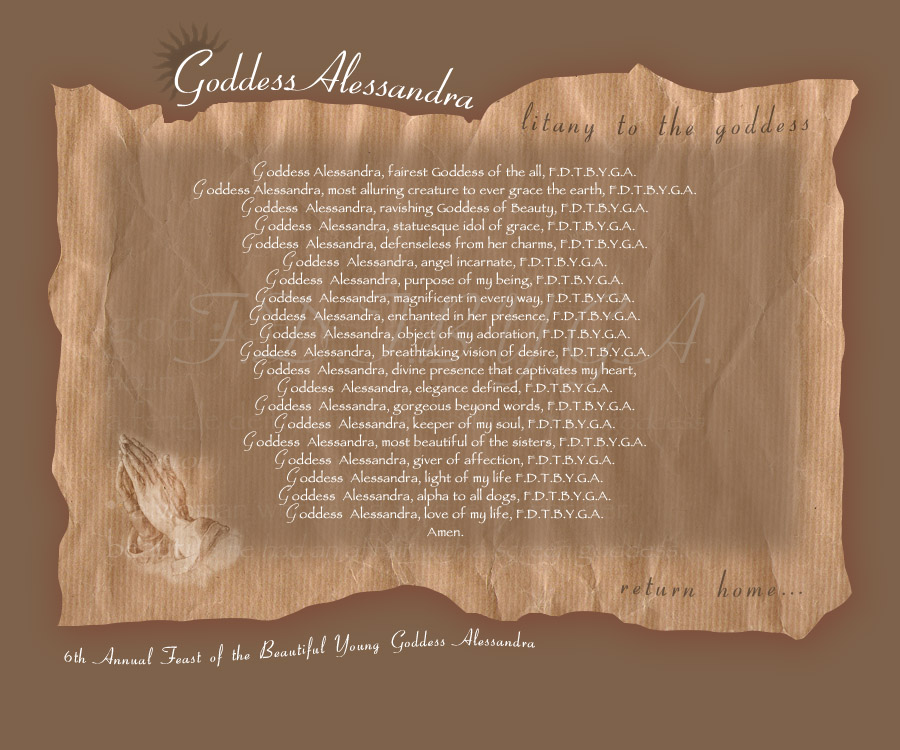 Goddess Alessandra
litany to the goddess
Goddess Alessandra, fairest Goddess of the all, F.D.T.B.Y.G.A.
Goddess Alessandra, most alluring creature to ever grace the earth, F.D.T.B.Y.G.A.
Goddess Alessandra, ravishing Goddess of Beauty, F.D.T.B.Y.G.A.
Goddess Alessandra, statuesque idol of grace, F.D.T.B.Y.G.A.
Goddess Alessandra, defenseless from her charms, F.D.T.B.Y.G.A.
Goddess Alessandra, angel incarnate, F.D.T.B.Y.G.A.
Goddess Alessandra, purpose of my being, F.D.T.B.Y.G.A.
Goddess Alessandra, magnificent in every way, F.D.T.B.Y.G.A.
Goddess Alessandra, enchanted in her presence, F.D.T.B.Y.G.A.
Goddess Alessandra, object of my adoration, F.D.T.B.Y.G.A.
Goddess Alessandra, breathtaking vision of desire, F.D.T.B.Y.G.A.
Goddess Alessandra, divine presence that captivates my heart,
Goddess Alessandra, elegance defined, F.D.T.B.Y.G.A.
Goddess Alessandra, gorgeous beyond words, F.D.T.B.Y.G.A.
Goddess Alessandra, keeper of my soul, F.D.T.B.Y.G.A.
Goddess Alessandra, most beautiful of the sisters, F.D.T.B.Y.G.A.
Goddess Alessandra, giver of affection, F.D.T.B.Y.G.A.
Goddess Alessandra, light of my life F.D.T.B.Y.G.A.
Goddess Alessandra, alpha to all dogs, F.D.T.B.Y.G.A.
Goddess Alessandra, love of my life, F.D.T.B.Y.G.A.
Amen.
return home...
6th Annual Feast of the Beautiful Young Goddess Alessandra